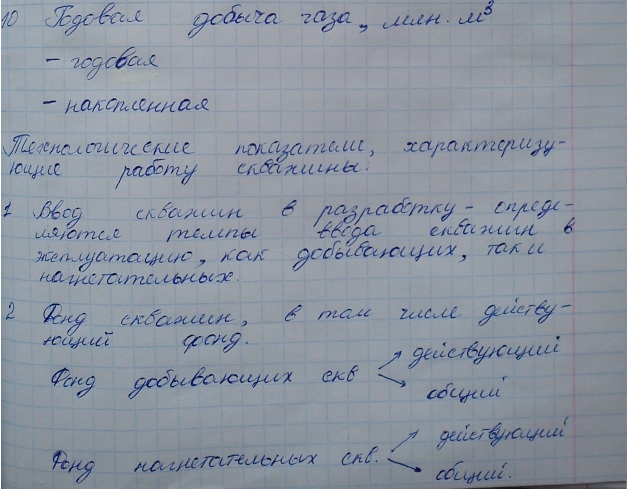 10 Годовая добыча газа, млн. м³
- годовая
- накопленная
Технологические показатели, характеризу-
ющие работу скважины:
1 Ввод скважин в разработку - опреде-
ляются темпы ввода скважин в
эксплуатацию, как добывающих, так и
нагнетательных.
2 Фонд скважин, в том числе действу-
ющий фонд.
Фонд добывающих скв → действующий
→ общий
Фонд нагнетательных скв. → действующий
→ общий.